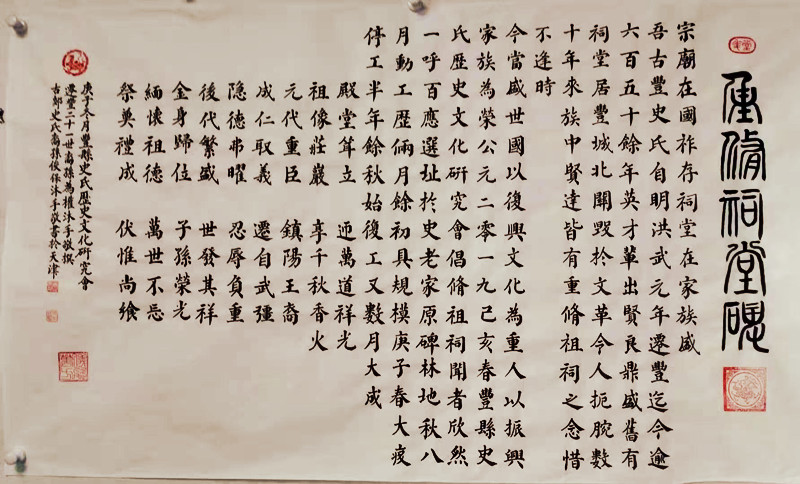 重脩祠堂碑
宗廟在國祚存祠堂在家族盛
吾古豐史氏自明洪武元年遷豐迄今逾
六百五十餘年英才輩出賢良鼎盛舊有
祠堂居豐城北關毀於文革今人扼腕數
十年來族中賢達皆有重脩祖祠之念惜
不逢時
今當盛世國以復興文化為重人以振興
家族為榮公元二零一九己亥春豐縣史
氏歷史文化研究會倡脩祖祠聞者欣然
一呼百應選址於史老家原碑林地秋八
月動工歷倆月餘初具規模庚子春大疫
停工半年餘秋始復工又數月大成
殿堂聳立 迎萬道祥光
祖像莊嚴 享千秋香火
元代重臣 鎮陽王裔
成仁取義 遷自武彊
隐德弗曜 忍辱負重
後代繁盛 世發其祥
金身歸位 子孫榮光
緬懷祖德 萬世不忘
祭奠禮成 伏惟尚飨
庚子冬月豐縣史氏歷史文化研究會
遷豐二十一世裔孫為權沐手敬撰
古邨史氏裔孫俊保沐手敬書於天津